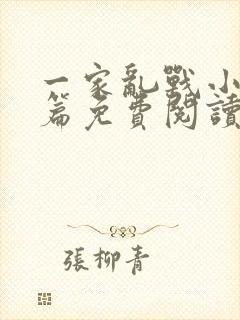 一家亂戰小
篇免費閱讀
張柳青